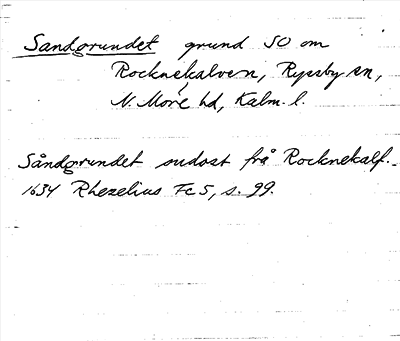 Sandgrundet grund SO om
Rocknekalven, Ryssby sn,
N. Möre hd, Kalm. l.
Såndgrundet sudost frå Rocknekalf.
1634 Rhezelius Fc 5, s. 99.